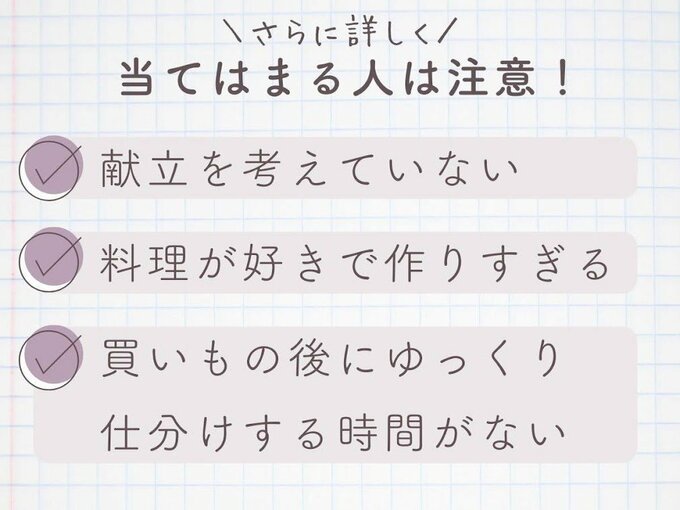 \さらに詳しく/
当てはまる人は注意！
献立を考えていない
料理が好きで作りすぎる
買いもの後にゆっくり
仕分けする時間がない